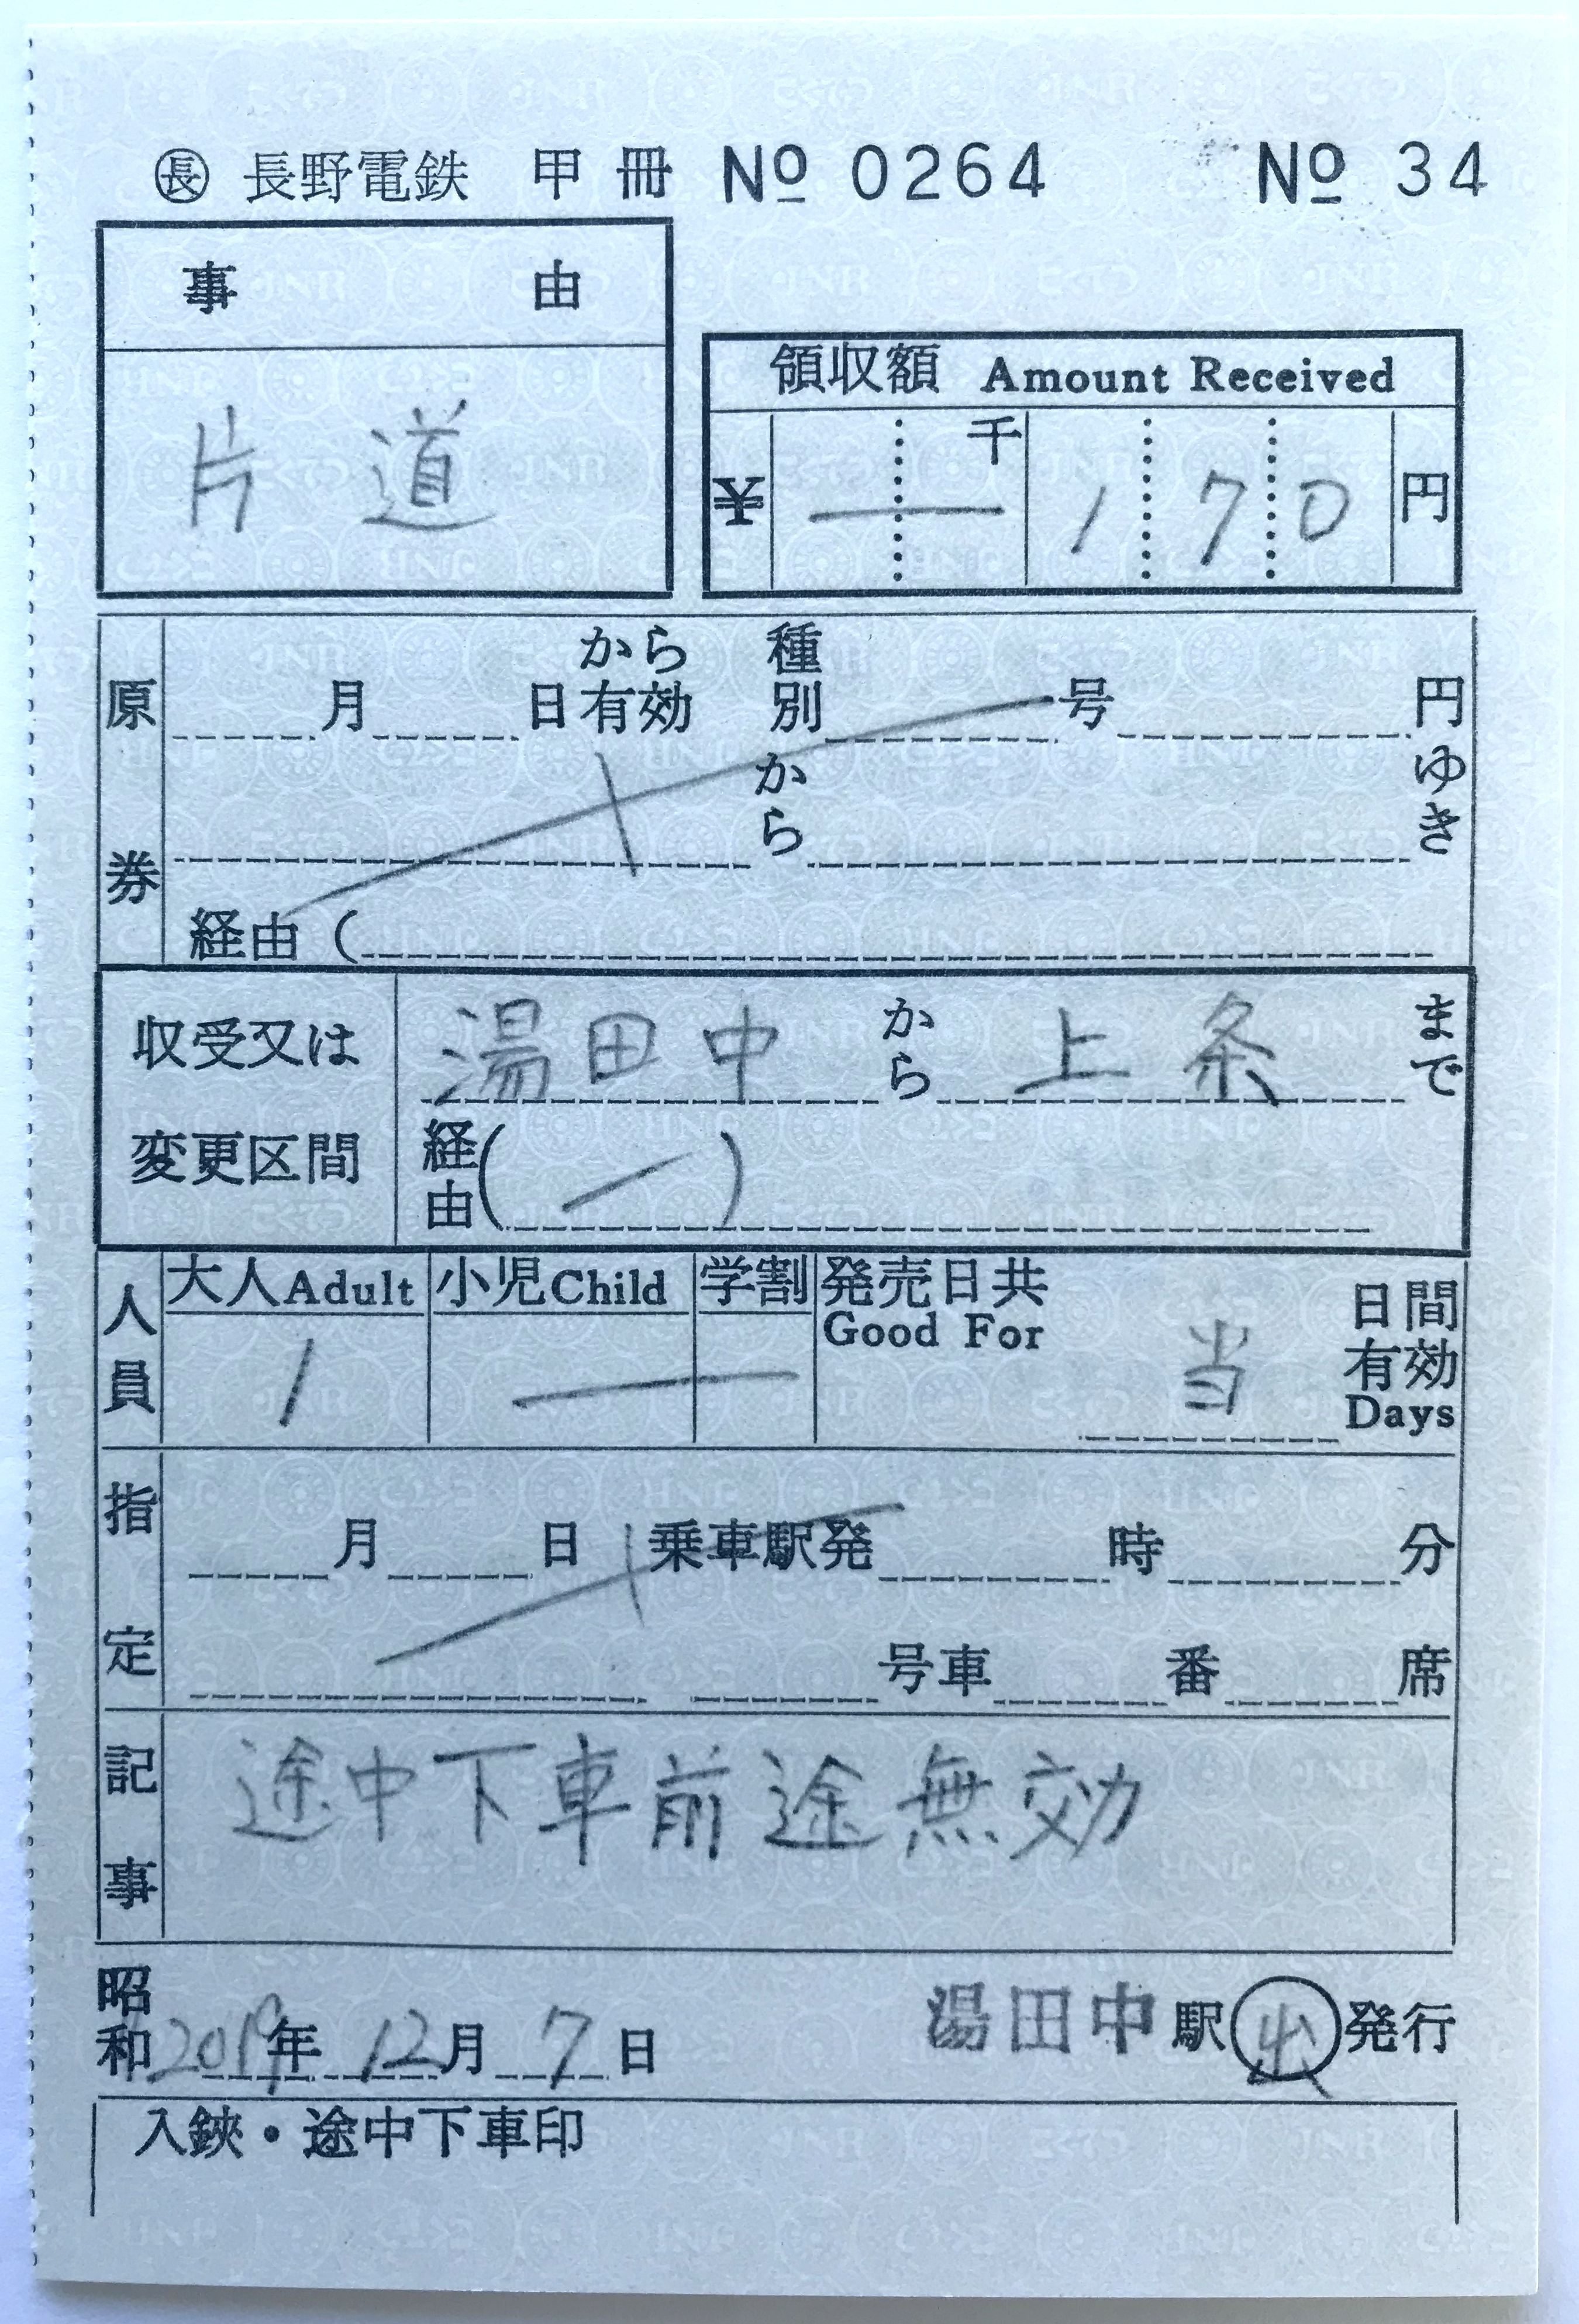 長 長野電鉄 甲冊 № 0264 № 34
事由
片道
領収額 Amount Received
¥ — 千 170 円
原券
月 日から有効 種別 号 円
から ゆき
経由 (
収受又は変更区間
湯田中 から 上条 まで
経由 ( )
人員
大人Adult 小児Child 学割 発売日共 Good For 当 日間有効 Days
1 —
指定
月 日 乗車駅発 時 分
号車 番 席
記事
途中下車前途無効
昭和 2019年 12月 7日 湯田中駅 出 発行
入鋏・途中下車印